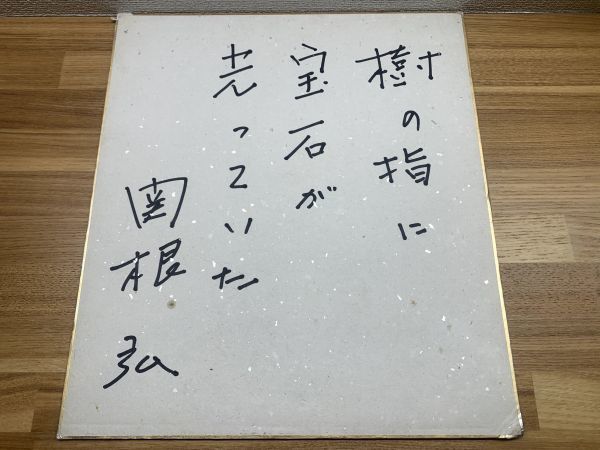 樹の指に
宝石が
光っていた
関根弘